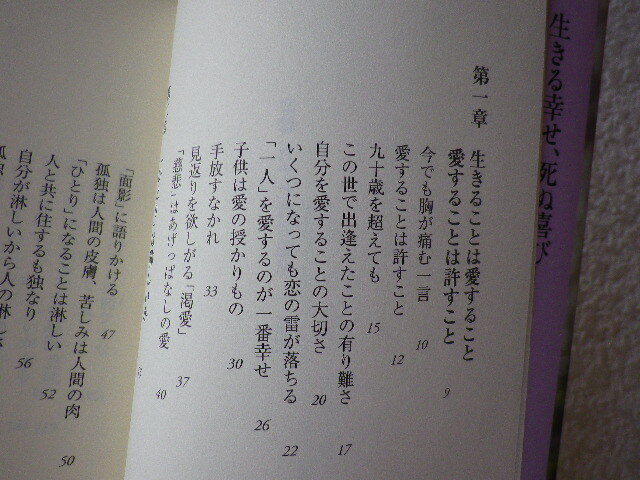 生きる幸せ、死ぬ喜び
第一章 生きることは愛すること
愛することは許すこと 9
今でも胸が痛む一言 10
愛することは許すこと 12
九十歳を超えても 15
この世で出逢えたことの有り難さ 17
自分を愛することの大切さ 20
いくつになっても恋の雷が落ちる 22
「一人」を愛するのが一番幸せ 26
子供は愛の授かりもの 30
手放すなかれ 33
見返りを欲しがる「渇愛」 37
「慈悲」はあげっぱなしの愛 40
「面影」に語りかける 47
孤独は人間の皮膚、苦しみは人間の肉 50
「ひとり」になることは淋しい 52
人と共に住するも独なり 56
自分が淋しいから人の淋しさ
孤独